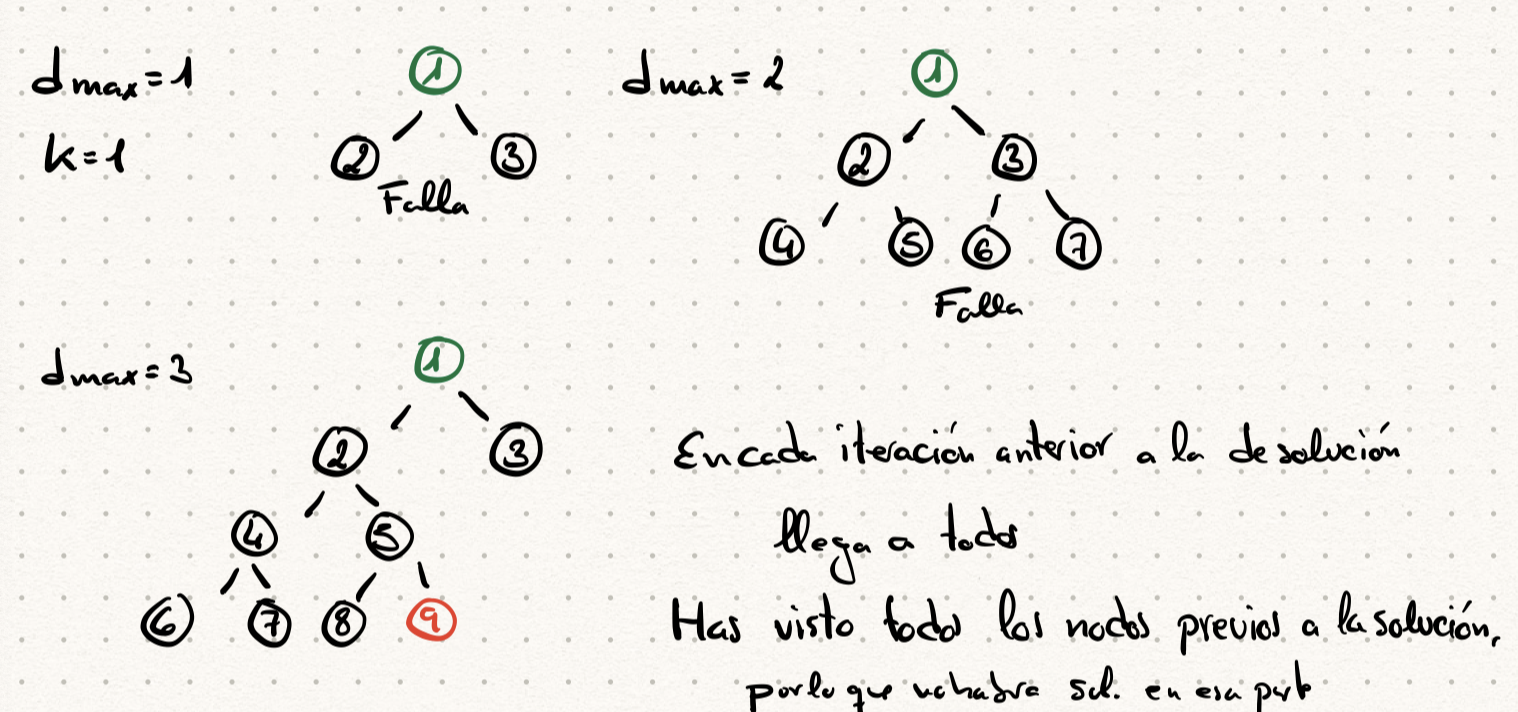 dmax=1
k=1
1
2
3
Falla
dmax=2
1
2
3
4
5
6
7
Falla
dmax=3
1
2
3
4
5
6
7
8
9
En cada iteración anterior a la de solución
llega a todo
Has visto todos los nodos previos a la solución,
por lo que no habra sol. en esa parte